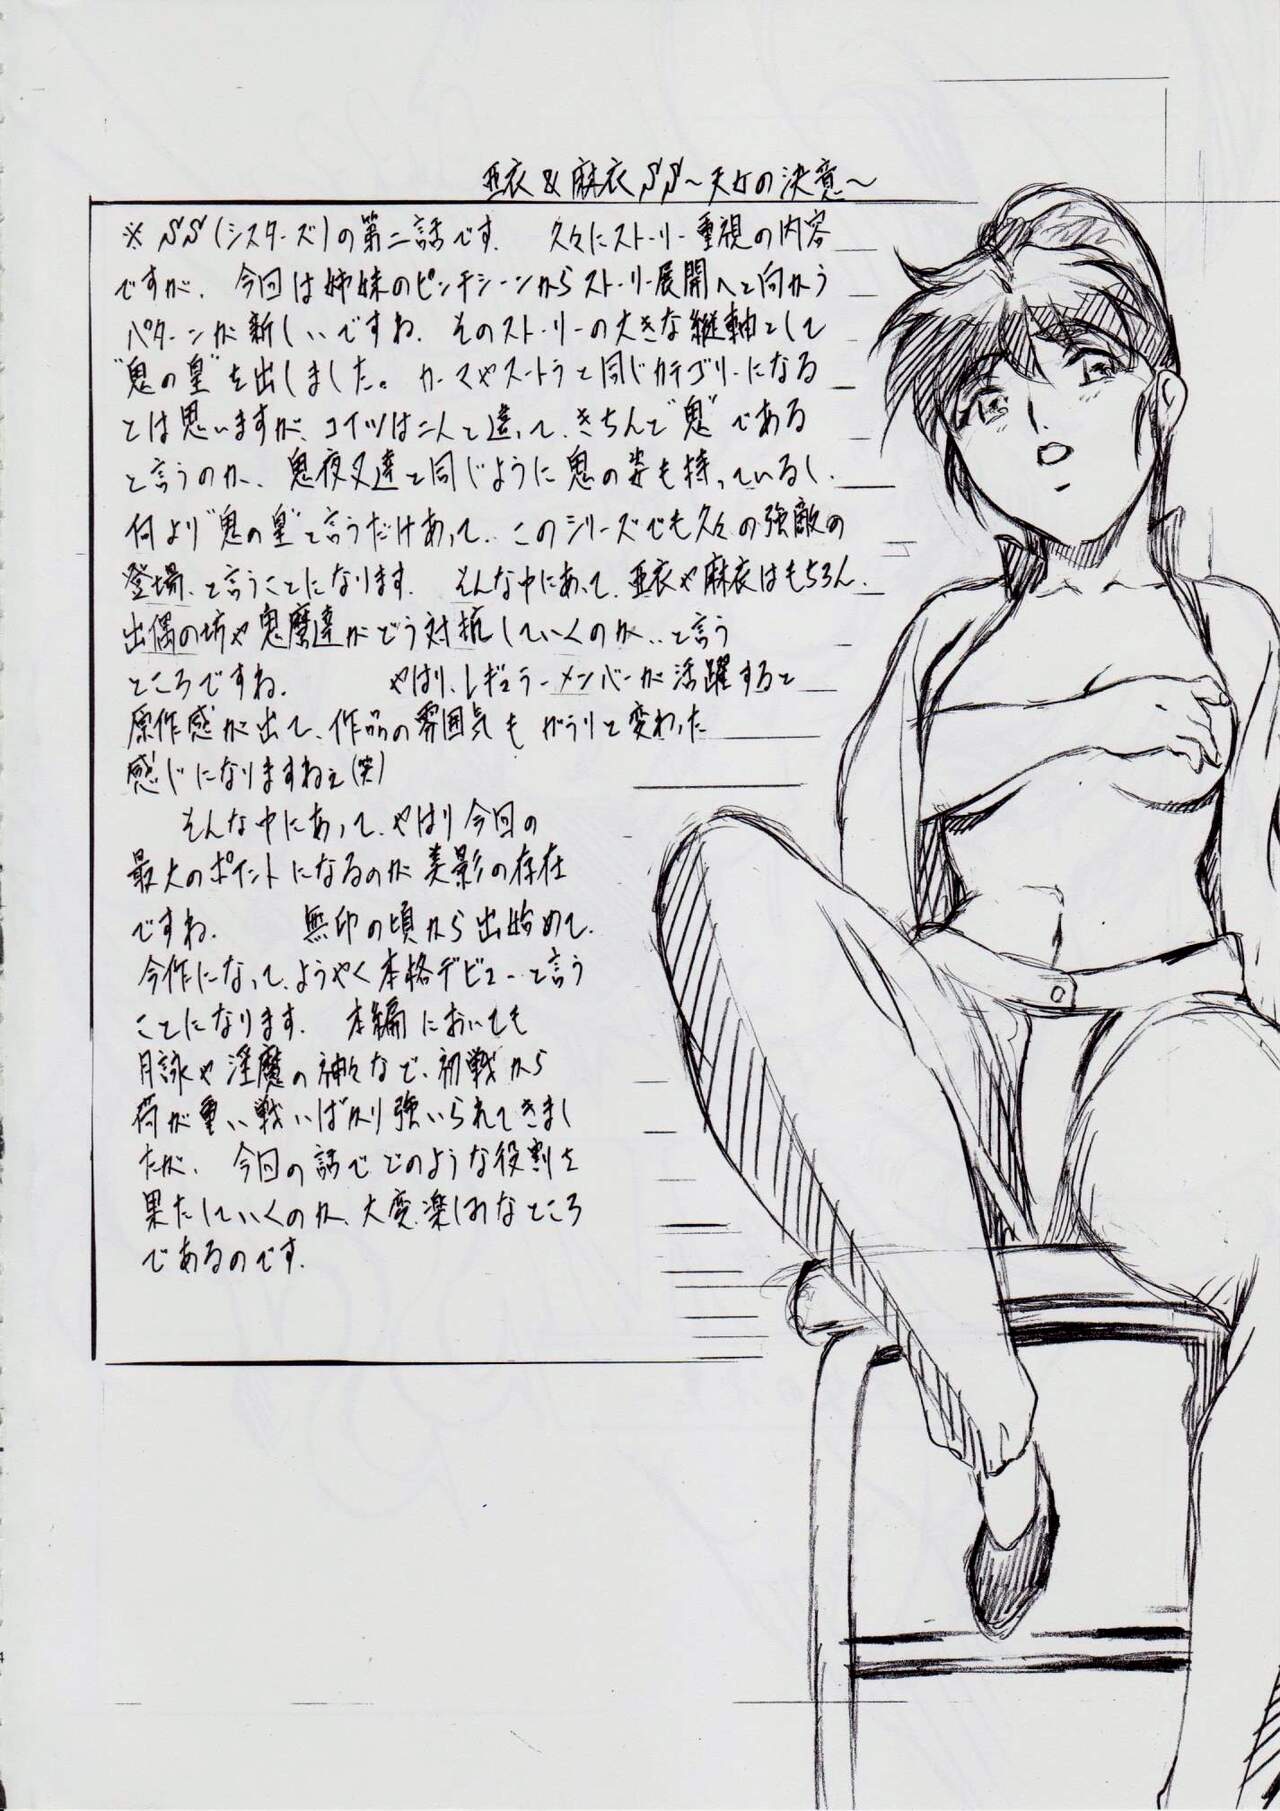 亜衣&麻衣SS～天女の決意～
※SS(シスターズ)の第二話です. 久々にストーリー重視の内容
ですが、今回は姉妹のピンチシーンからストーリー展開へと向かう
パターンが新しいですね. そのストーリーの大きな縦軸として
"鬼の皇"を出しました。カーマやスートラと同じカテゴリーになる
とは思いますが、コイツは二人と違って、きちんと"鬼"である
と言うのか、鬼夜叉達と同じように鬼の姿も持っているし、
何より"鬼の皇"と言うだけあって、このシリーズでも久々の強敵の
登場、と言うことになります. そんな中にあって、亜衣や麻衣はもちろん、
出偶の坊や鬼麿達がどう対抗していくのか‥と言う
ところですね. やはり、レギュラーメンバーが活躍すると
原作感が出て、作品の雰囲気もがらりと変わった
感じになりますねぇ(笑)
そんな中にあって、やはり今回の
最大のポイントになるのが美影の存在
ですね. 無印の頃から出始めて、
今作になって、ようやく本格デビュー‥と言う
ことになります. 本編においても
月詠や淫魔の神々など、初戦から
荷が重い戦いばかり強いられてきまし
たが、今回の話でどのような役割を
果たしていくのか、大変、楽しみなところ
であるのです.
4